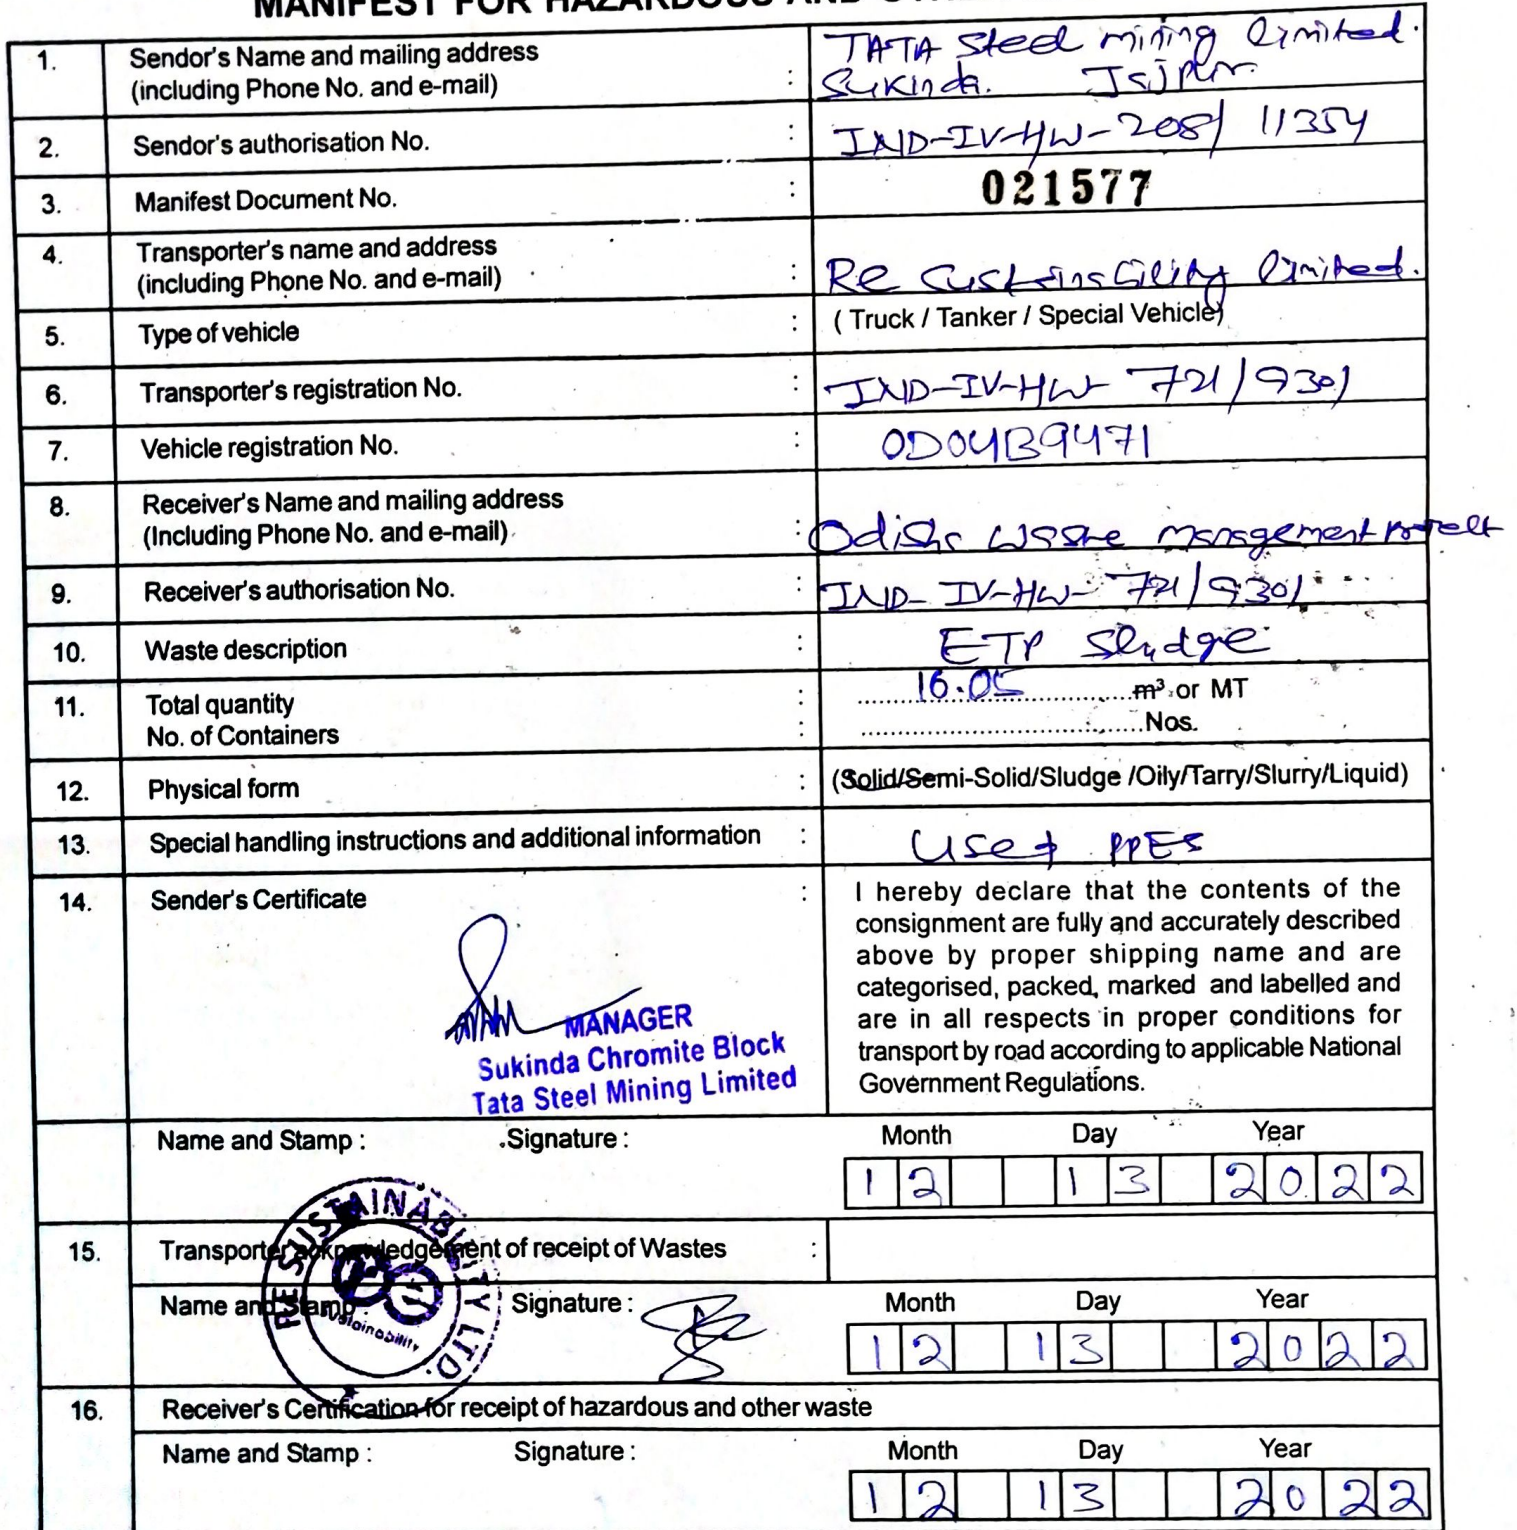 MANIFEST FOR HAZARDOUS AND
1. Sendor's Name and mailing address : TATA Steel mining limited.
(including Phone No. and e-mail) Sukinda. Jajpur.
2. Sendor's authorisation No. : IND-IV-HW-208/11354
3. Manifest Document No. : 021577
4. Transporter's name and address
(including Phone No. and e-mail) : Re Sustainability limited.
5. Type of vehicle : ( Truck / Tanker / Special Vehicle)
6. Transporter's registration No. : IND-IV-HW-721/9301
7. Vehicle registration No. : OD04B9471
8. Receiver's Name and mailing address
(Including Phone No. and e-mail) : Odisha Waste management
9. Receiver's authorisation No. : IND-IV-HW-721/9301
10. Waste description : ETP Sludge
11. Total quantity : 16.05 m³ or MT
No. of Containers : Nos.
12. Physical form : (Solid/Semi-Solid/Sludge /Oily/Tarry/Slurry/Liquid)
13. Special handling instructions and additional information : Used PPES
14. Sender's Certificate : I hereby declare that the contents of the
consignment are fully and accurately described
above by proper shipping name and are
categorised, packed, marked and labelled and
are in all respects in proper conditions for
transport by road according to applicable National
Government Regulations.
MANAGER
Sukinda Chromite Block
Tata Steel Mining Limited
Name and Stamp : Signature : Month Day Year
12 13 2022
RE SUSTAINABILITY LTD.
Sustainability
15. Transporter acknowledgement of receipt of Wastes :
Name and Stamp : Signature : Month Day Year
12 13 2022
16. Receiver's Certification for receipt of hazardous and other waste
Name and Stamp : Signature : Month Day Year
12 13 2022